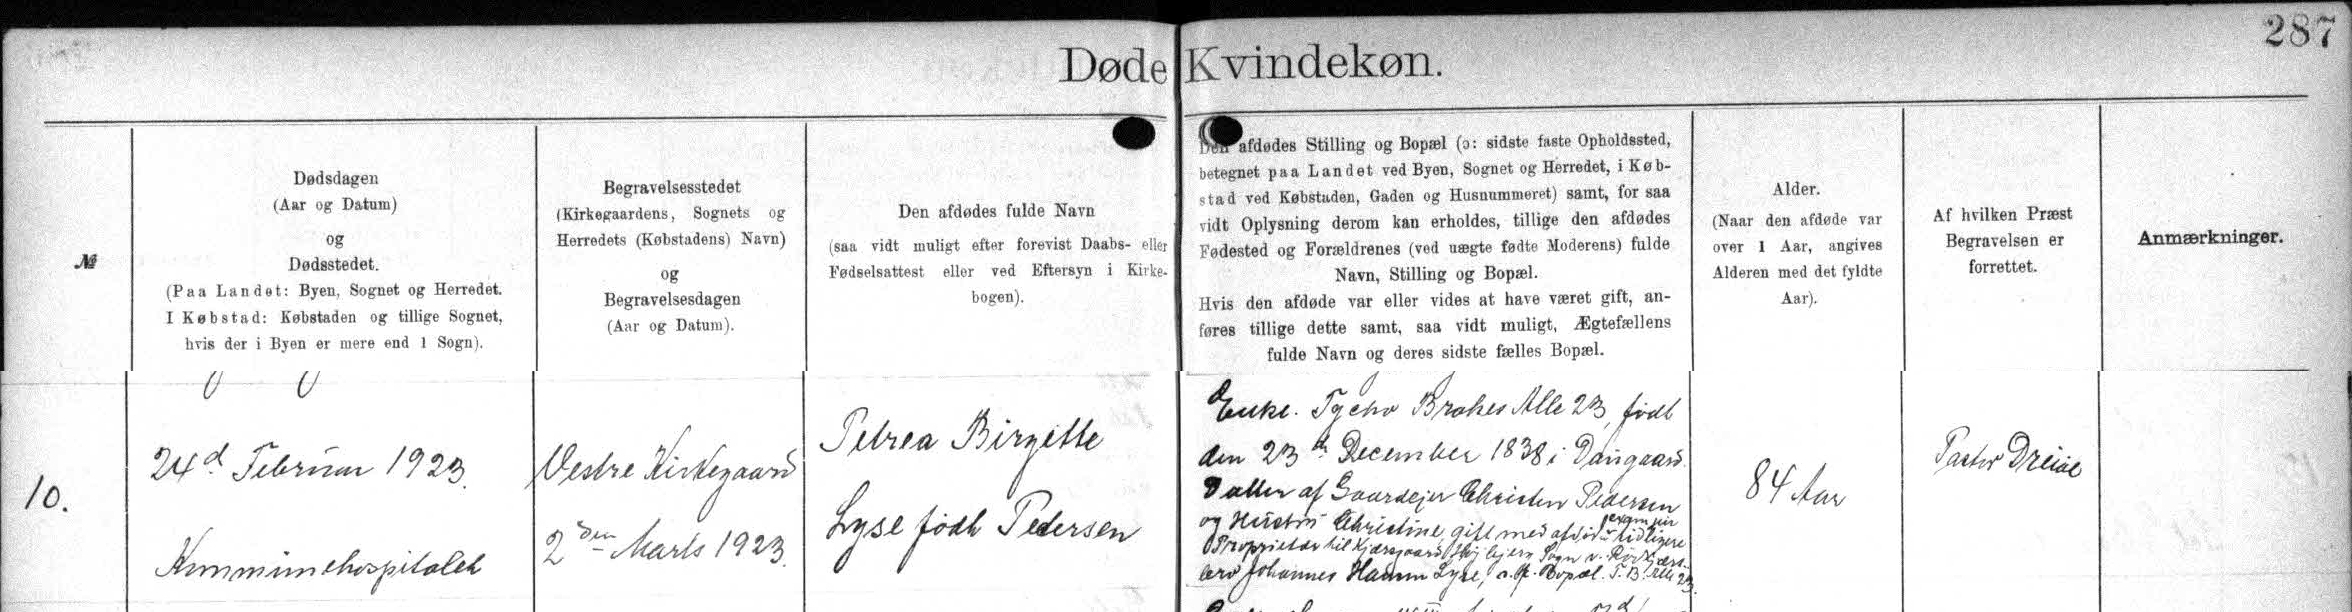 287
Døde Kvindekøn.
№
Dødsdagen
(Aar og Datum)
og
Dødsstedet.
(Paa Landet: Byen, Sognet og Herredet.
I Købstad: Købstaden og tillige Sognet,
hvis der i Byen er mere end 1 Sogn).
Begravelsesstedet
(Kirkegaardens, Sognets og
Herredets (Købstadens) Navn)
og
Begravelsesdagen
(Aar og Datum).
Den afdødes fulde Navn
(saa vidt muligt efter forevist Daabs- eller
Fødselsattest eller ved Eftersyn i Kirke-
bogen).
Den afdødes Stilling og Bopæl (ɔ: sidste faste Opholdssted,
betegnet paa Landet ved Byen, Sognet og Herredet, i Køb-
stad ved Købstaden, Gaden og Husnummeret) samt, for saa
vidt Oplysning derom kan erholdes, tillige den afdødes
Fødested og Forældrenes (ved uægte fødte Moderens) fulde
Navn, Stilling og Bopæl.
Hvis den afdøde var eller vides at have været gift, an-
føres tillige dette samt, saa vidt muligt, Ægtefællens
fulde Navn og deres sidste fælles Bopæl.
Alder.
(Naar den afdøde var
over 1 Aar, angives
Alderen med det fyldte
Aar).
Af hvilken Præst
Begravelsen er
forrettet.
Anmærkninger.
10.
24d Februar 1923.
Kommunehospitalet
Vestre Kirkegaard
2den Marts 1923.
Petrea Birgitte
Lyse født Pedersen
Enke. Tycho Brahes Alle 23, født
den 23d December 1838 i
Datter af Gaardejer Christen Pedersen
og Hustru Christine, gift med afdøde tidligere
Proprietær til Kjærsgaard, Sogn v. Rødkjærs-
bro Johannes Hamm Lyse, s. f. Bopæl. T. B. Alle 23.
84 Aar
Pastor Dreioe